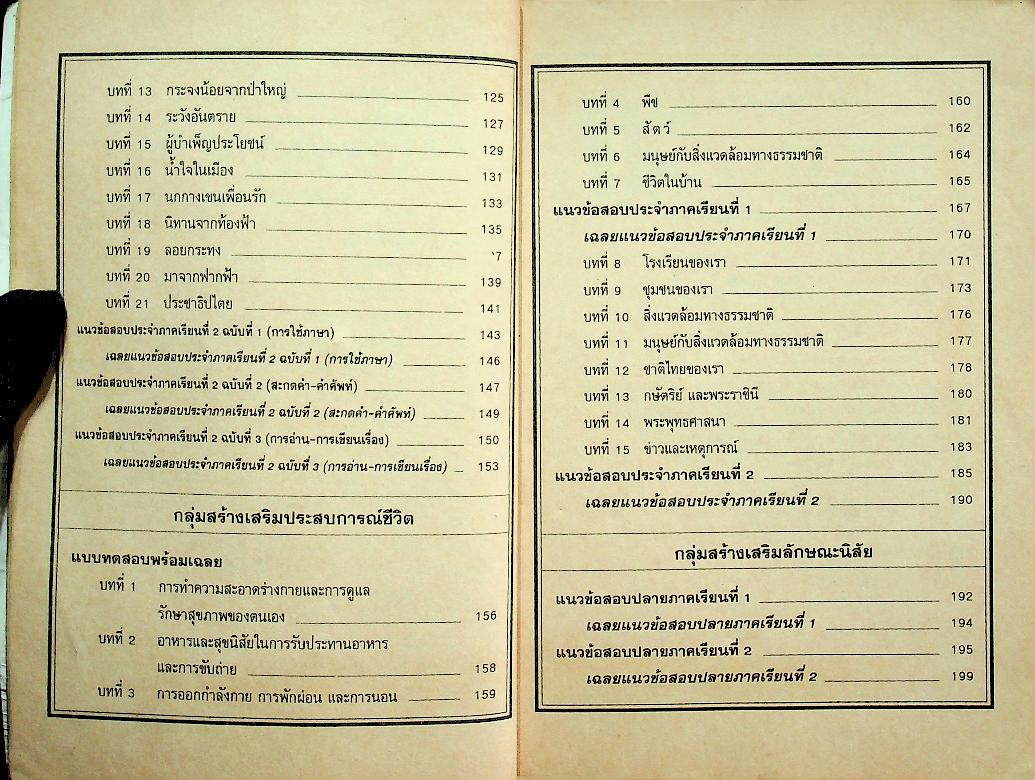 บทที่ 13 กระจงน้อยจากป่าใหญ่ 125
บทที่ 14 ระวังอันตราย 127
บทที่ 15 ผู้บำเพ็ญประโยชน์ 129
บทที่ 16 น้ำใจในเมือง 131
บทที่ 17 นกกางเขนเพื่อนรัก 133
บทที่ 18 นิทานจากท้องฟ้า 135
บทที่ 19 ลอยกระทง 7
บทที่ 20 มาจากฟากฟ้า 139
บทที่ 21 ประชาธิปไตย 141
แนวข้อสอบประจำภาคเรียนที่ 2 ฉบับที่ 1 (การใช้ภาษา) 143
เฉลยแนวข้อสอบประจำภาคเรียนที่ 2 ฉบับที่ 1 (การใช้ภาษา) 146
แนวข้อสอบประจำภาคเรียนที่ 2 ฉบับที่ 2 (สะกดคำ-คำศัพท์) 147
เฉลยแนวข้อสอบประจำภาคเรียนที่ 2 ฉบับที่ 2 (สะกดคำ-คำศัพท์) 149
แนวข้อสอบประจำภาคเรียนที่ 2 ฉบับที่ 3 (การอ่าน-การเขียนเรื่อง) 150
เฉลยแนวข้อสอบประจำภาคเรียนที่ 2 ฉบับที่ 3 (การอ่าน-การเขียนเรื่อง) 153
กลุ่มสร้างเสริมประสบการณ์ชีวิต
แบบทดสอบพร้อมเฉลย
บทที่ 1 การทำความสะอาดร่างกายและการดูแล
รักษาสุขภาพของตนเอง 156
บทที่ 2 อาหารและสุขนิสัยในการรับประทานอาหาร
และการขับถ่าย 158
บทที่ 3 การออกกำลังกาย การพักผ่อน และการนอน 159
บทที่ 4 พืช 160
บทที่ 5 สัตว์ 162
บทที่ 6 มนุษย์กับสิ่งแวดล้อมทางธรรมชาติ 164
บทที่ 7 ชีวิตในบ้าน 165
แนวข้อสอบประจำภาคเรียนที่ 1 167
เฉลยแนวข้อสอบประจำภาคเรียนที่ 1 170
บทที่ 8 โรงเรียนของเรา 171
บทที่ 9 ชุมชนของเรา 173
บทที่ 10 สิ่งแวดล้อมทางธรรมชาติ 176
บทที่ 11 มนุษย์กับสิ่งแวดล้อมทางธรรมชาติ 177
บทที่ 12 ชาติไทยของเรา 178
บทที่ 13 กษัตริย์ และพระราชินี 180
บทที่ 14 พระพุทธศาสนา 181
บทที่ 15 ข่าวและเหตุการณ์ 183
แนวข้อสอบประจำภาคเรียนที่ 2 185
เฉลยแนวข้อสอบประจำภาคเรียนที่ 2 190
กลุ่มสร้างเสริมลักษณะนิสัย
แนวข้อสอบปลายภาคเรียนที่ 1 192
เฉลยแนวข้อสอบปลายภาคเรียนที่ 1 194
แนวข้อสอบปลายภาคเรียนที่ 2 195
เฉลยแนวข้อสอบปลายภาคเรียนที่ 2 199